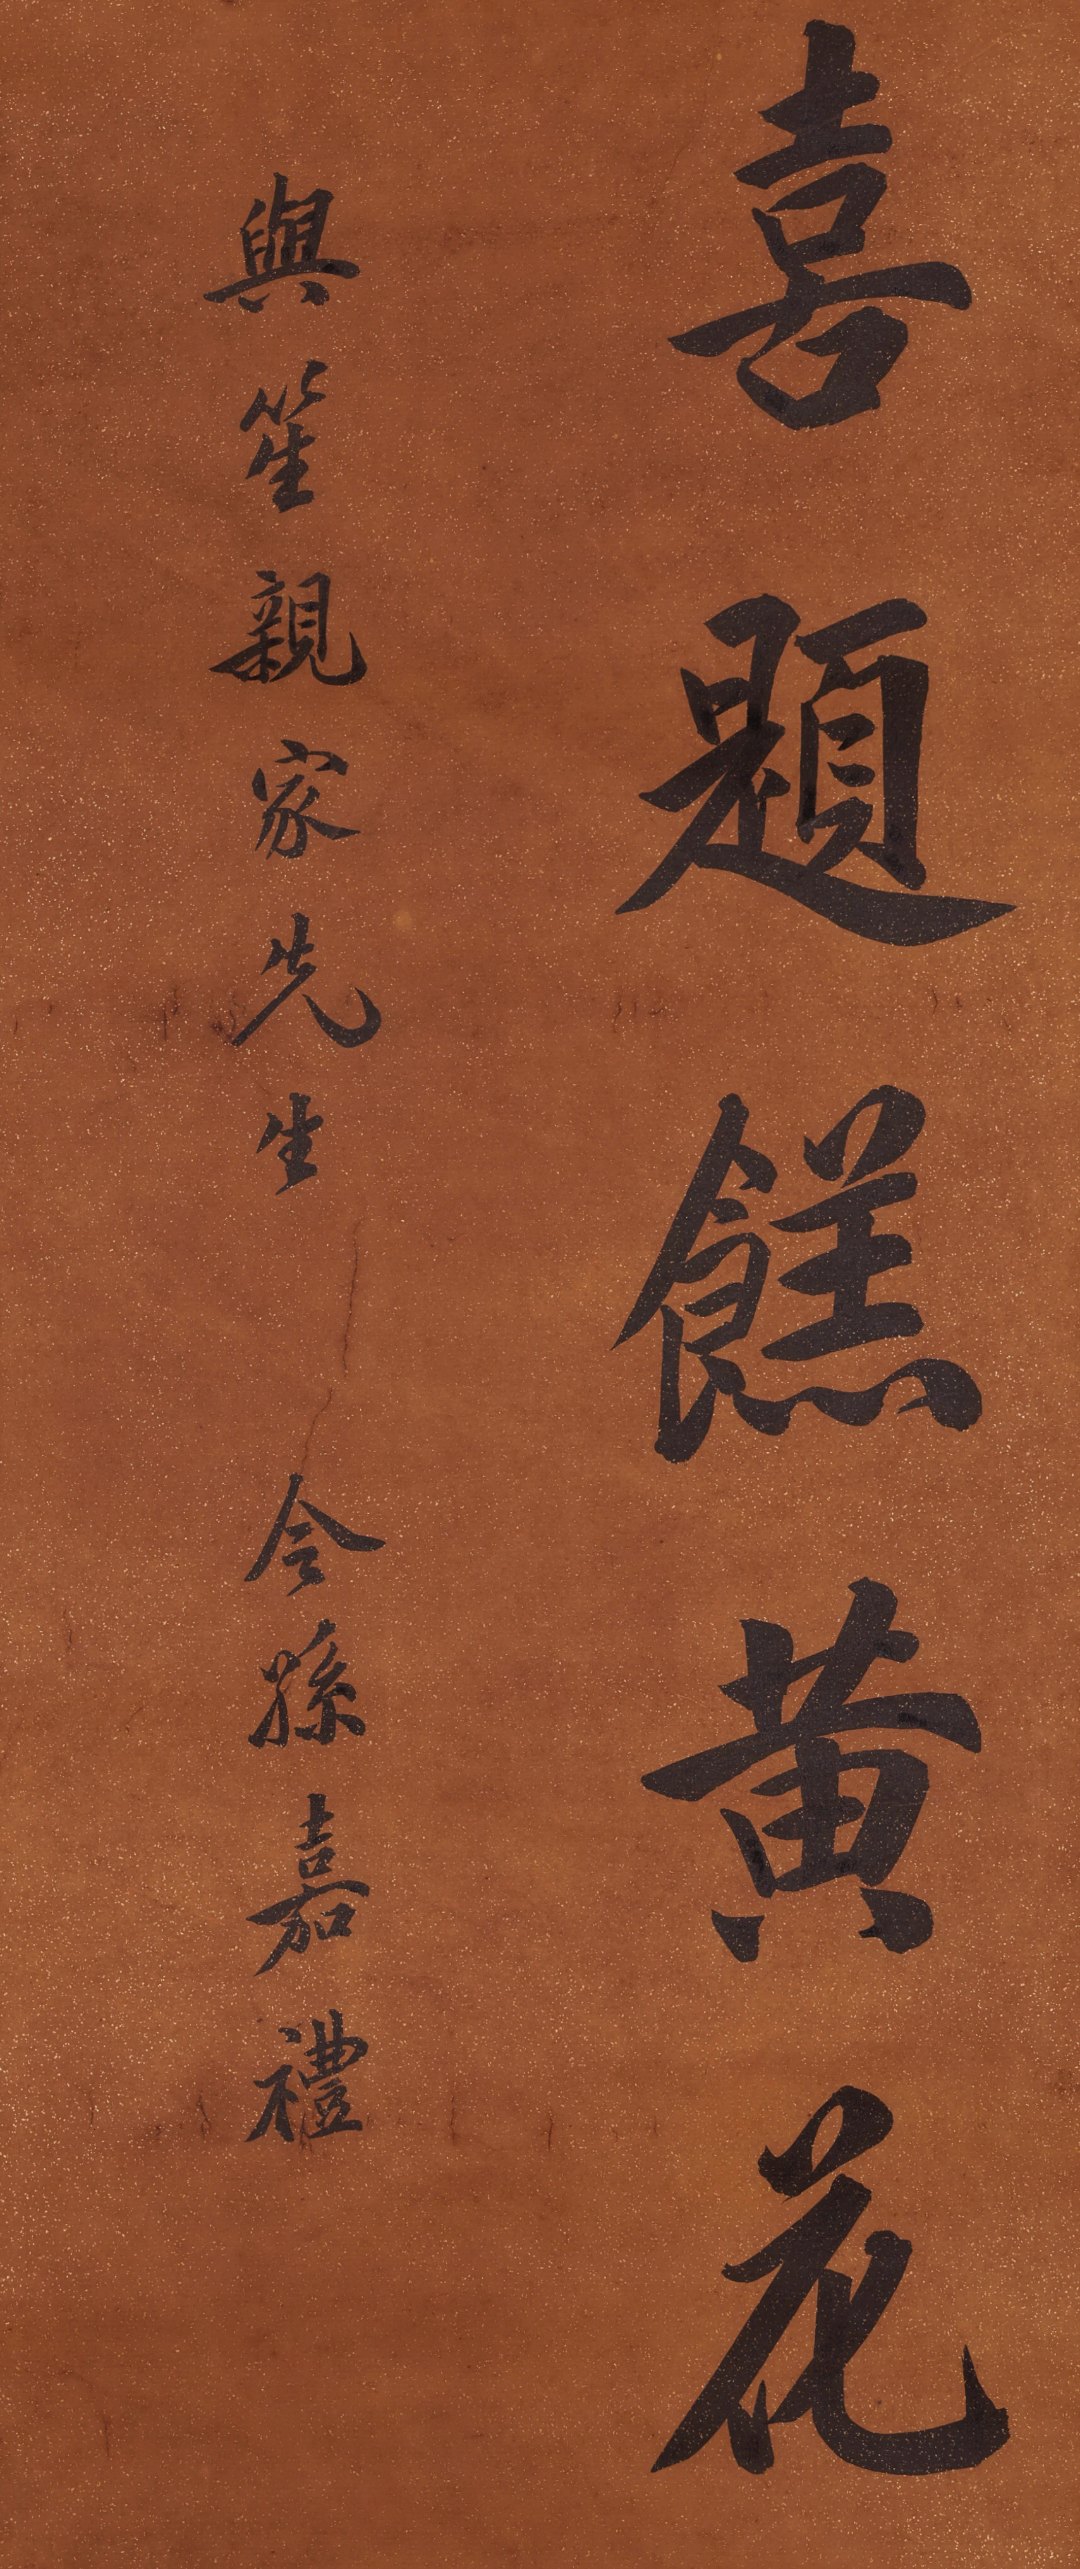 喜題餻黃花
與笙親家先生 令孫嘉禮